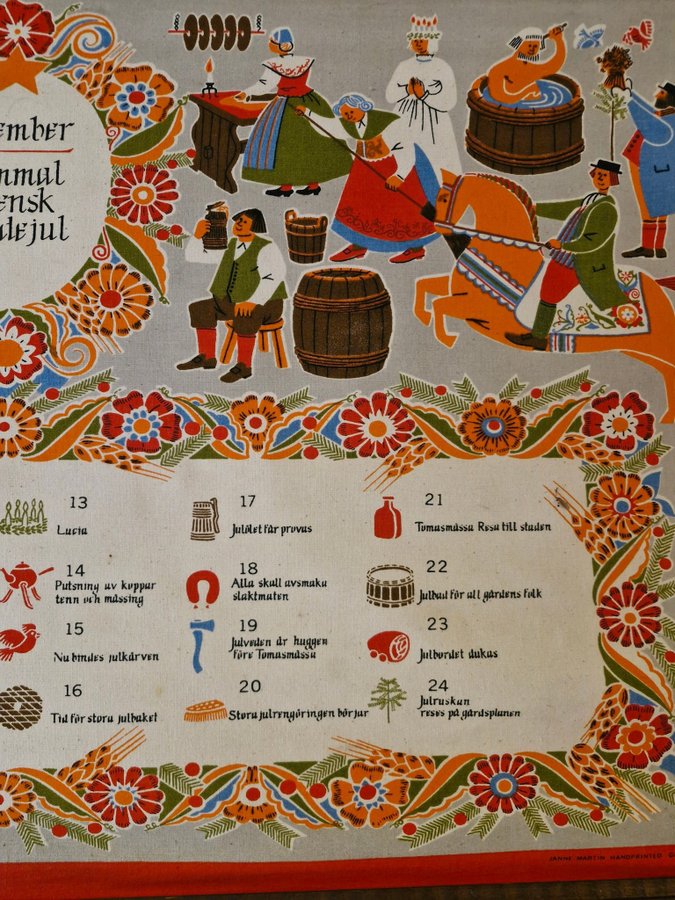 ember
mmal
ensk
dejul
13
Lucia
14
Putsning av koppar
tenn och mässing
15
Nu bindes julkärven
16
Tid för stora julbaket
17
Julölet får provas
18
Alla skall avsmaka
slaktmaten
19
Julveden är huggen
före Tomasmässa
20
Stora julrengöringen börjar
21
Tomasmässa Resa till staden
22
Julbad för all gårdens folk
23
Julbordet dukas
24
Julruskan
reses på gårdsplanen
JANNE MARTIN HANDPRINTED